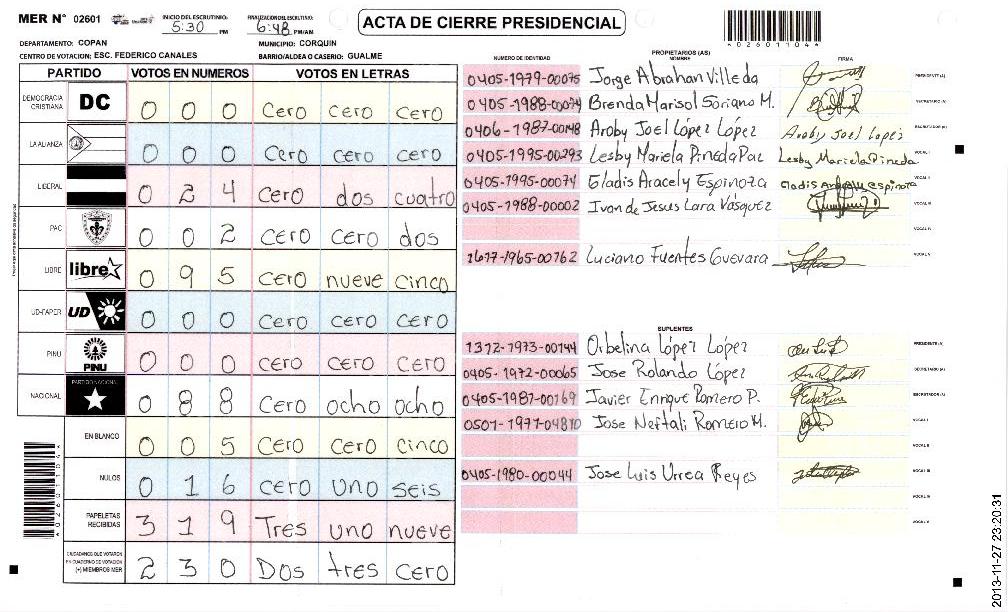 MER N° 02601
INICIO DEL ESCRUTINIO: 5:30 PM
FINALIZACION DEL ESCRUTINIO: 6:48 PM/AM
ACTA DE CIERRE PRESIDENCIAL
4026011044
DEPARTAMENTO: COPAN
MUNICIPIO: CORQUIN
CENTRO DE VOTACION: ESC. FEDERICO CANALES
BARRIO/ALDEA O CASERIO: GUALME
PARTIDO VOTOS EN NUMEROS VOTOS EN LETRAS
DEMOCRACIA CRISTIANA DC 0 0 0 Cero cero cero
LA ALIANZA 0 0 0 Cero cero cero
LIBERAL 0 2 4 Cero dos cuatro
PAC 0 0 2 Cero Cero dos
LIBRE libre 0 9 5 Cero nueve cinco
UD-FAPER UD 0 0 0 Cero cero cero
PINU PINU 0 0 0 cero cero cero
NACIONAL PARTIDO NACIONAL 0 8 8 Cero ocho ocho
EN BLANCO 0 0 5 Cero Cero cinco
NULOS 0 1 6 cero uno seis
PAPELETAS RECIBIDAS 3 1 9 Tres uno nueve
CIUDADANOS QUE VOTARON EN CUADERNO DE VOTACION (+) MIEMBROS MER 2 3 0 Dos tres cero
PROPIETARIOS (AS)
NUMERO DE IDENTIDAD NOMBRE FIRMA
0405-1979-00075 Jorge Abrahan Villeda PRESIDENTE (A)
0405-1988-00074 Brenda Marisol Soriano M. SECRETARIO (A)
0406-1987-00148 Aroby Joel López López Aroby Joel Lopez ESCRUTADOR (A)
0405-1995-00293 Lesby Mariela Pineda Paz Lesby Mariela Pineda VOCAL I
0405-1995-00074 Gladis Aracely Espinoza Gladis Aracely Espinoza VOCAL II
0405-1988-00002 Ivan de Jesus Lara Vásquez VOCAL III
VOCAL IV
1617-1965-00762 Luciano Fuentes Guevara VOCAL V
SUPLENTES
1312-1973-00144 Orbelina López López PRESIDENTE (A)
0405-1972-00065 Jose Rolando López SECRETARIO (A)
0405-1987-00169 Javier Enrique Romero P. ESCRUTADOR (A)
0501-1977-04810 Jose Neftali Romero M. VOCAL I
VOCAL II
0405-1980-00044 Jose Luis Urrea Reyes VOCAL III
VOCAL IV
VOCAL V
2013-11-27 23:20:31